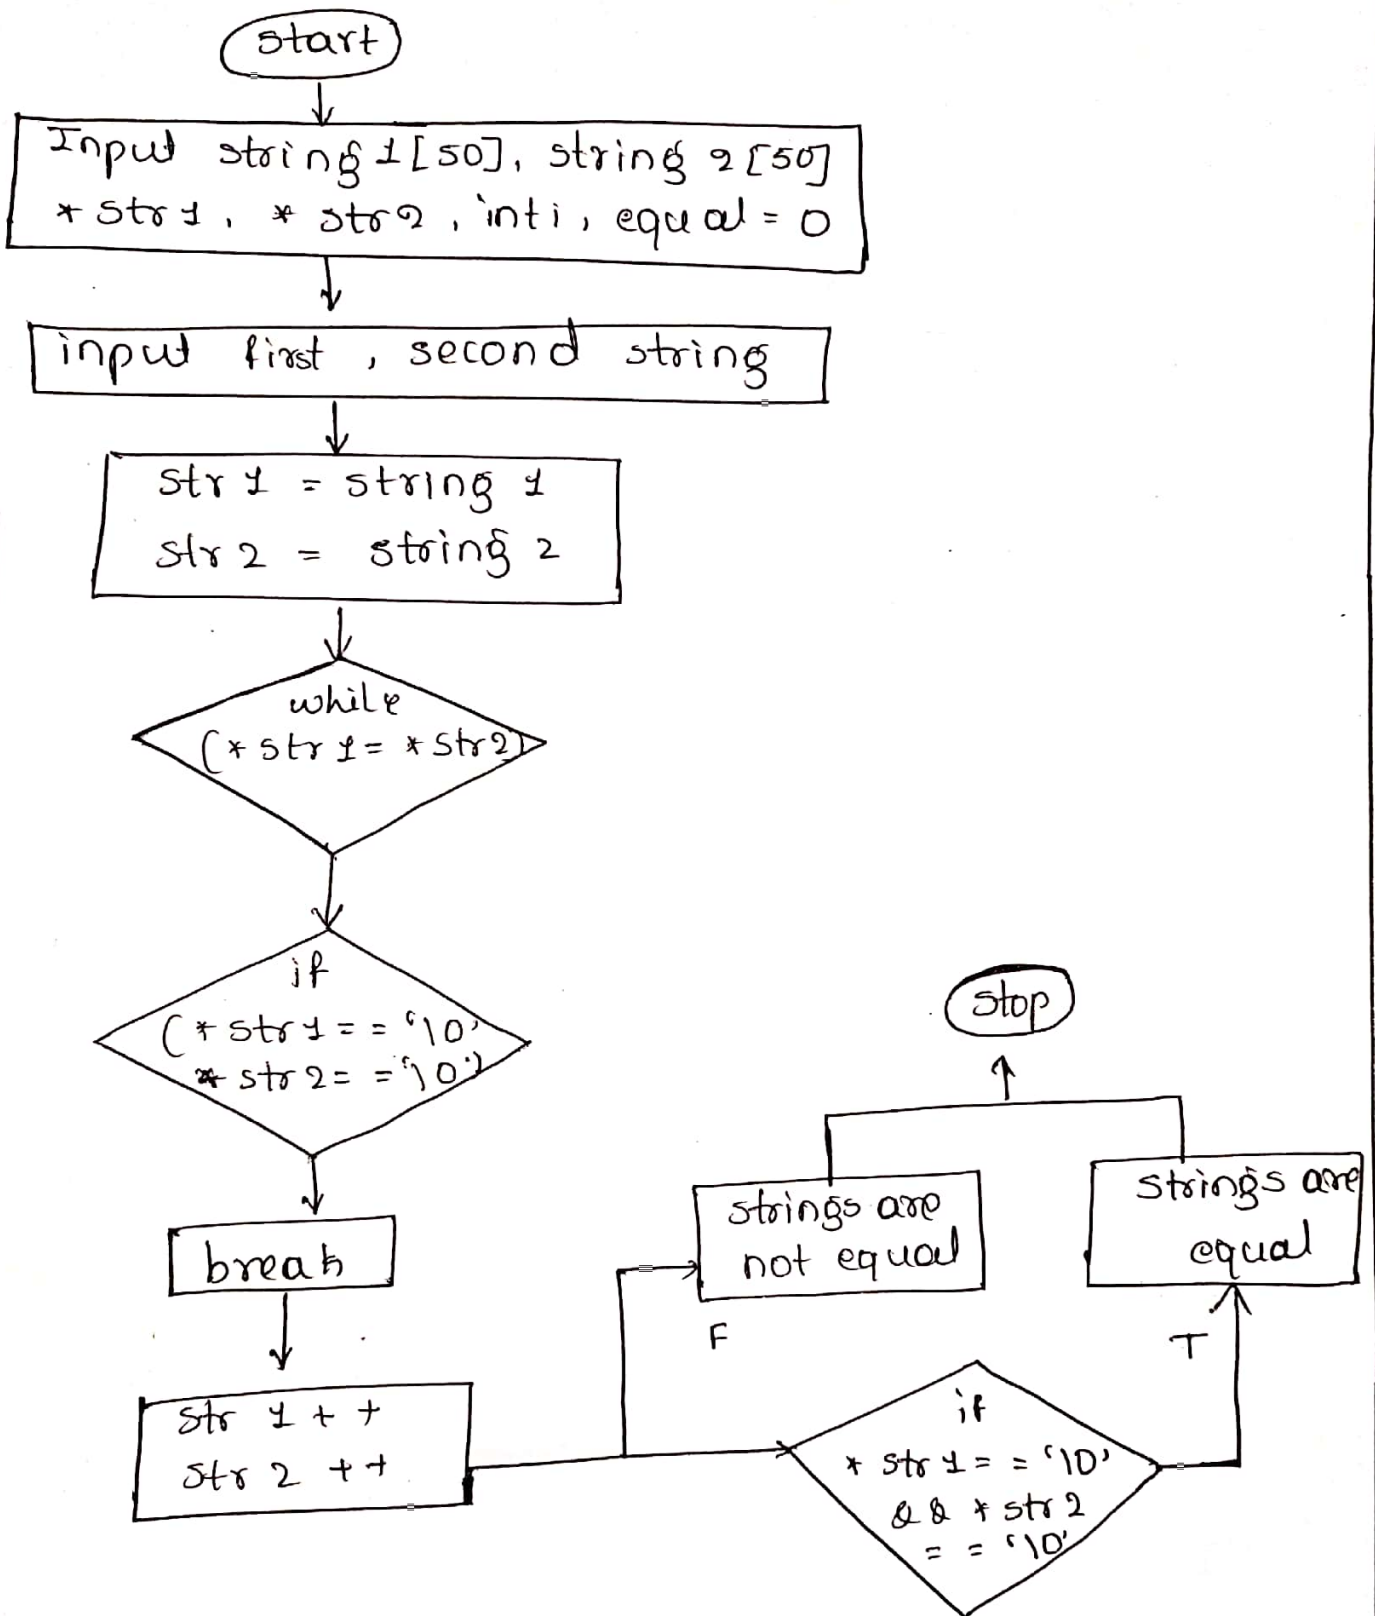 start
Input string 1[50], string 2[50]
* str 1, * str2, int i, equal = 0
input first, second string
str 1 = string 1
str 2 = string 2
while
(* str 1 = * str2)
if
(* str 1 == '\0'
* str 2 == '\0')
break
str 1 ++
str 2 ++
F
strings are
not equal
if
* str 1 == '\0'
&& * str 2
== '\0'
T
strings are
equal
stop